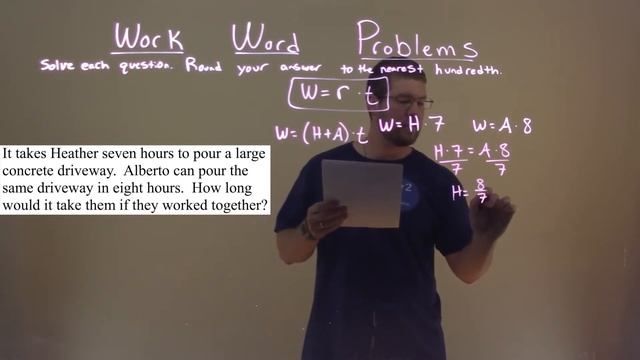 Work Word Problems
Solve each question. Round your answer to the nearest hundredth.
W = r · t
W = (H+A) · t
W = H · 7
W = A · 8
H · 7 = A · 8
7 7
H = 8/7
It takes Heather seven hours to pour a large
concrete driveway. Alberto can pour the
same driveway in eight hours. How long
would it take them if they worked together?